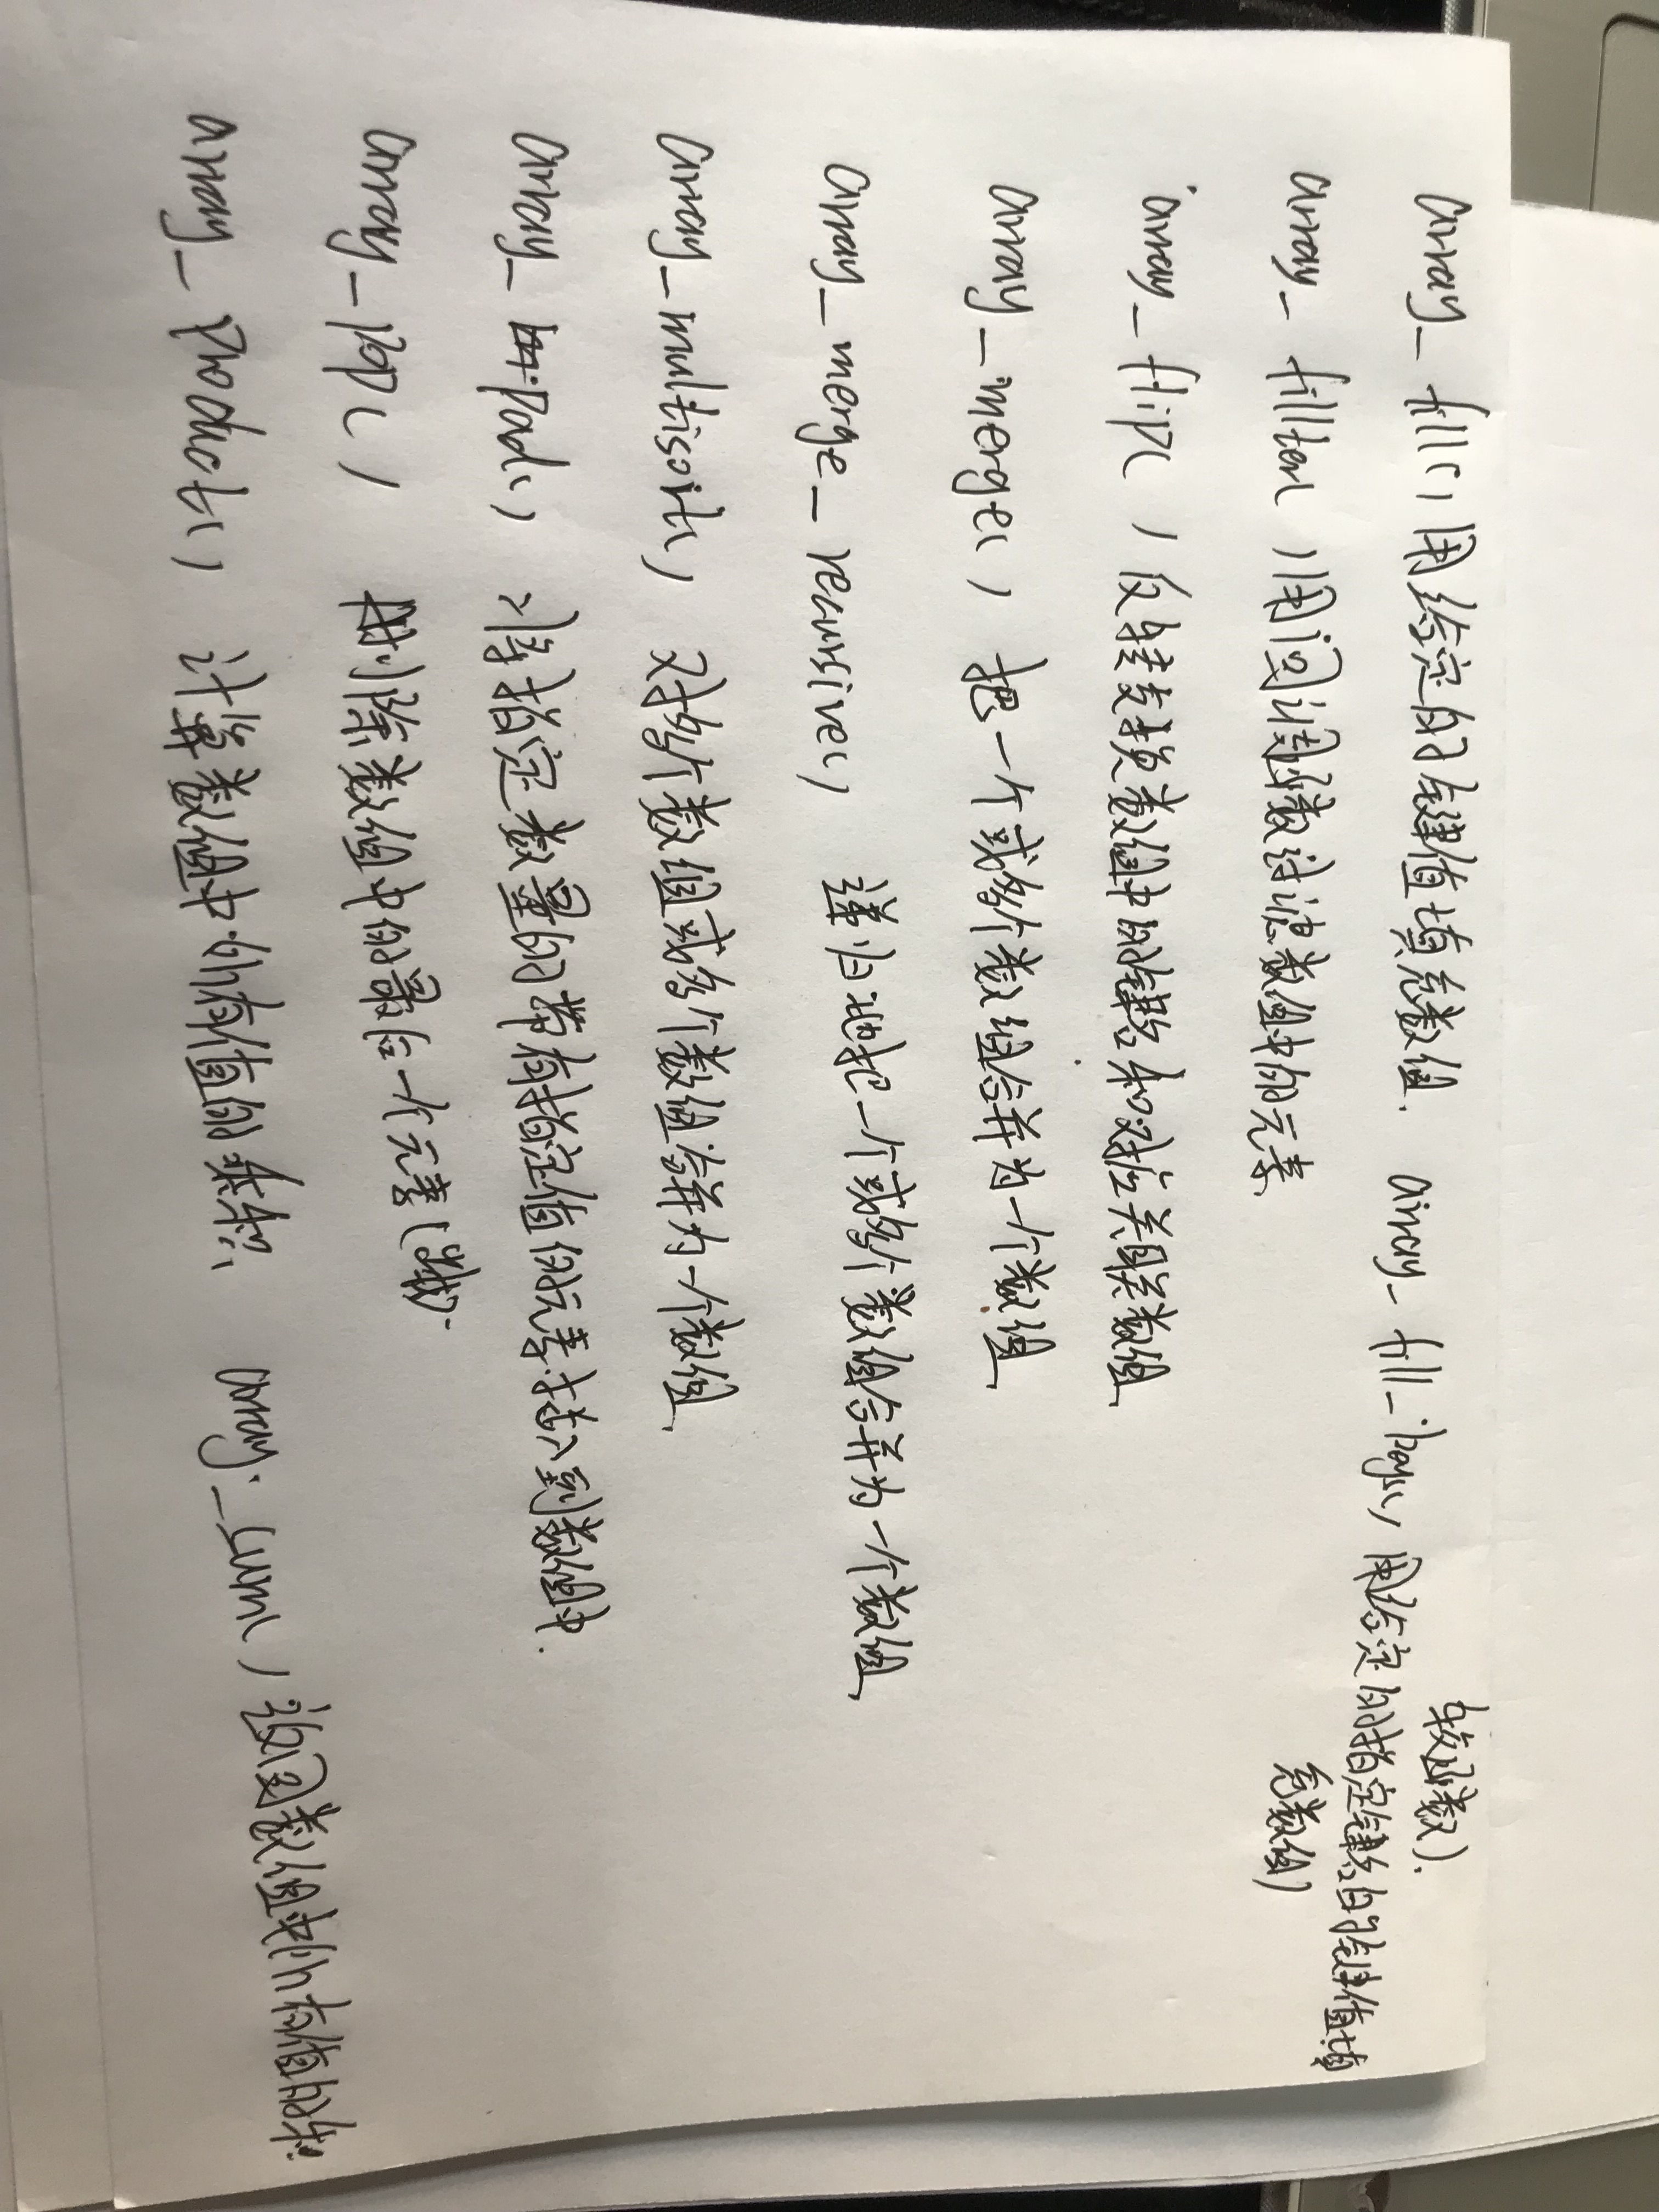 较函数).
array_fill() 用给定的键值填充数组. array_fill_keys() 用给定的指定键名的键值填
充数组)
array_filter() 用回调函数过滤数组中的元素.
array_flip() 反转交换数组中的键名和对应关联数组.
array_merge() 把一个或多个数组合并为一个数组.
array_merge_recursive() 递归地把一个或多个数组合并为一个数组.
array_multisort() 对多个数组或多个数组合并为一个数组.
array_pad() 将指定数量的带有指定值的元素插入到数组中.
array_pop() 删除数组中的最后一个元素(出栈).
array_product() 计算数组中所有值的乘积. array_sum() 返回数组中所有值的和.